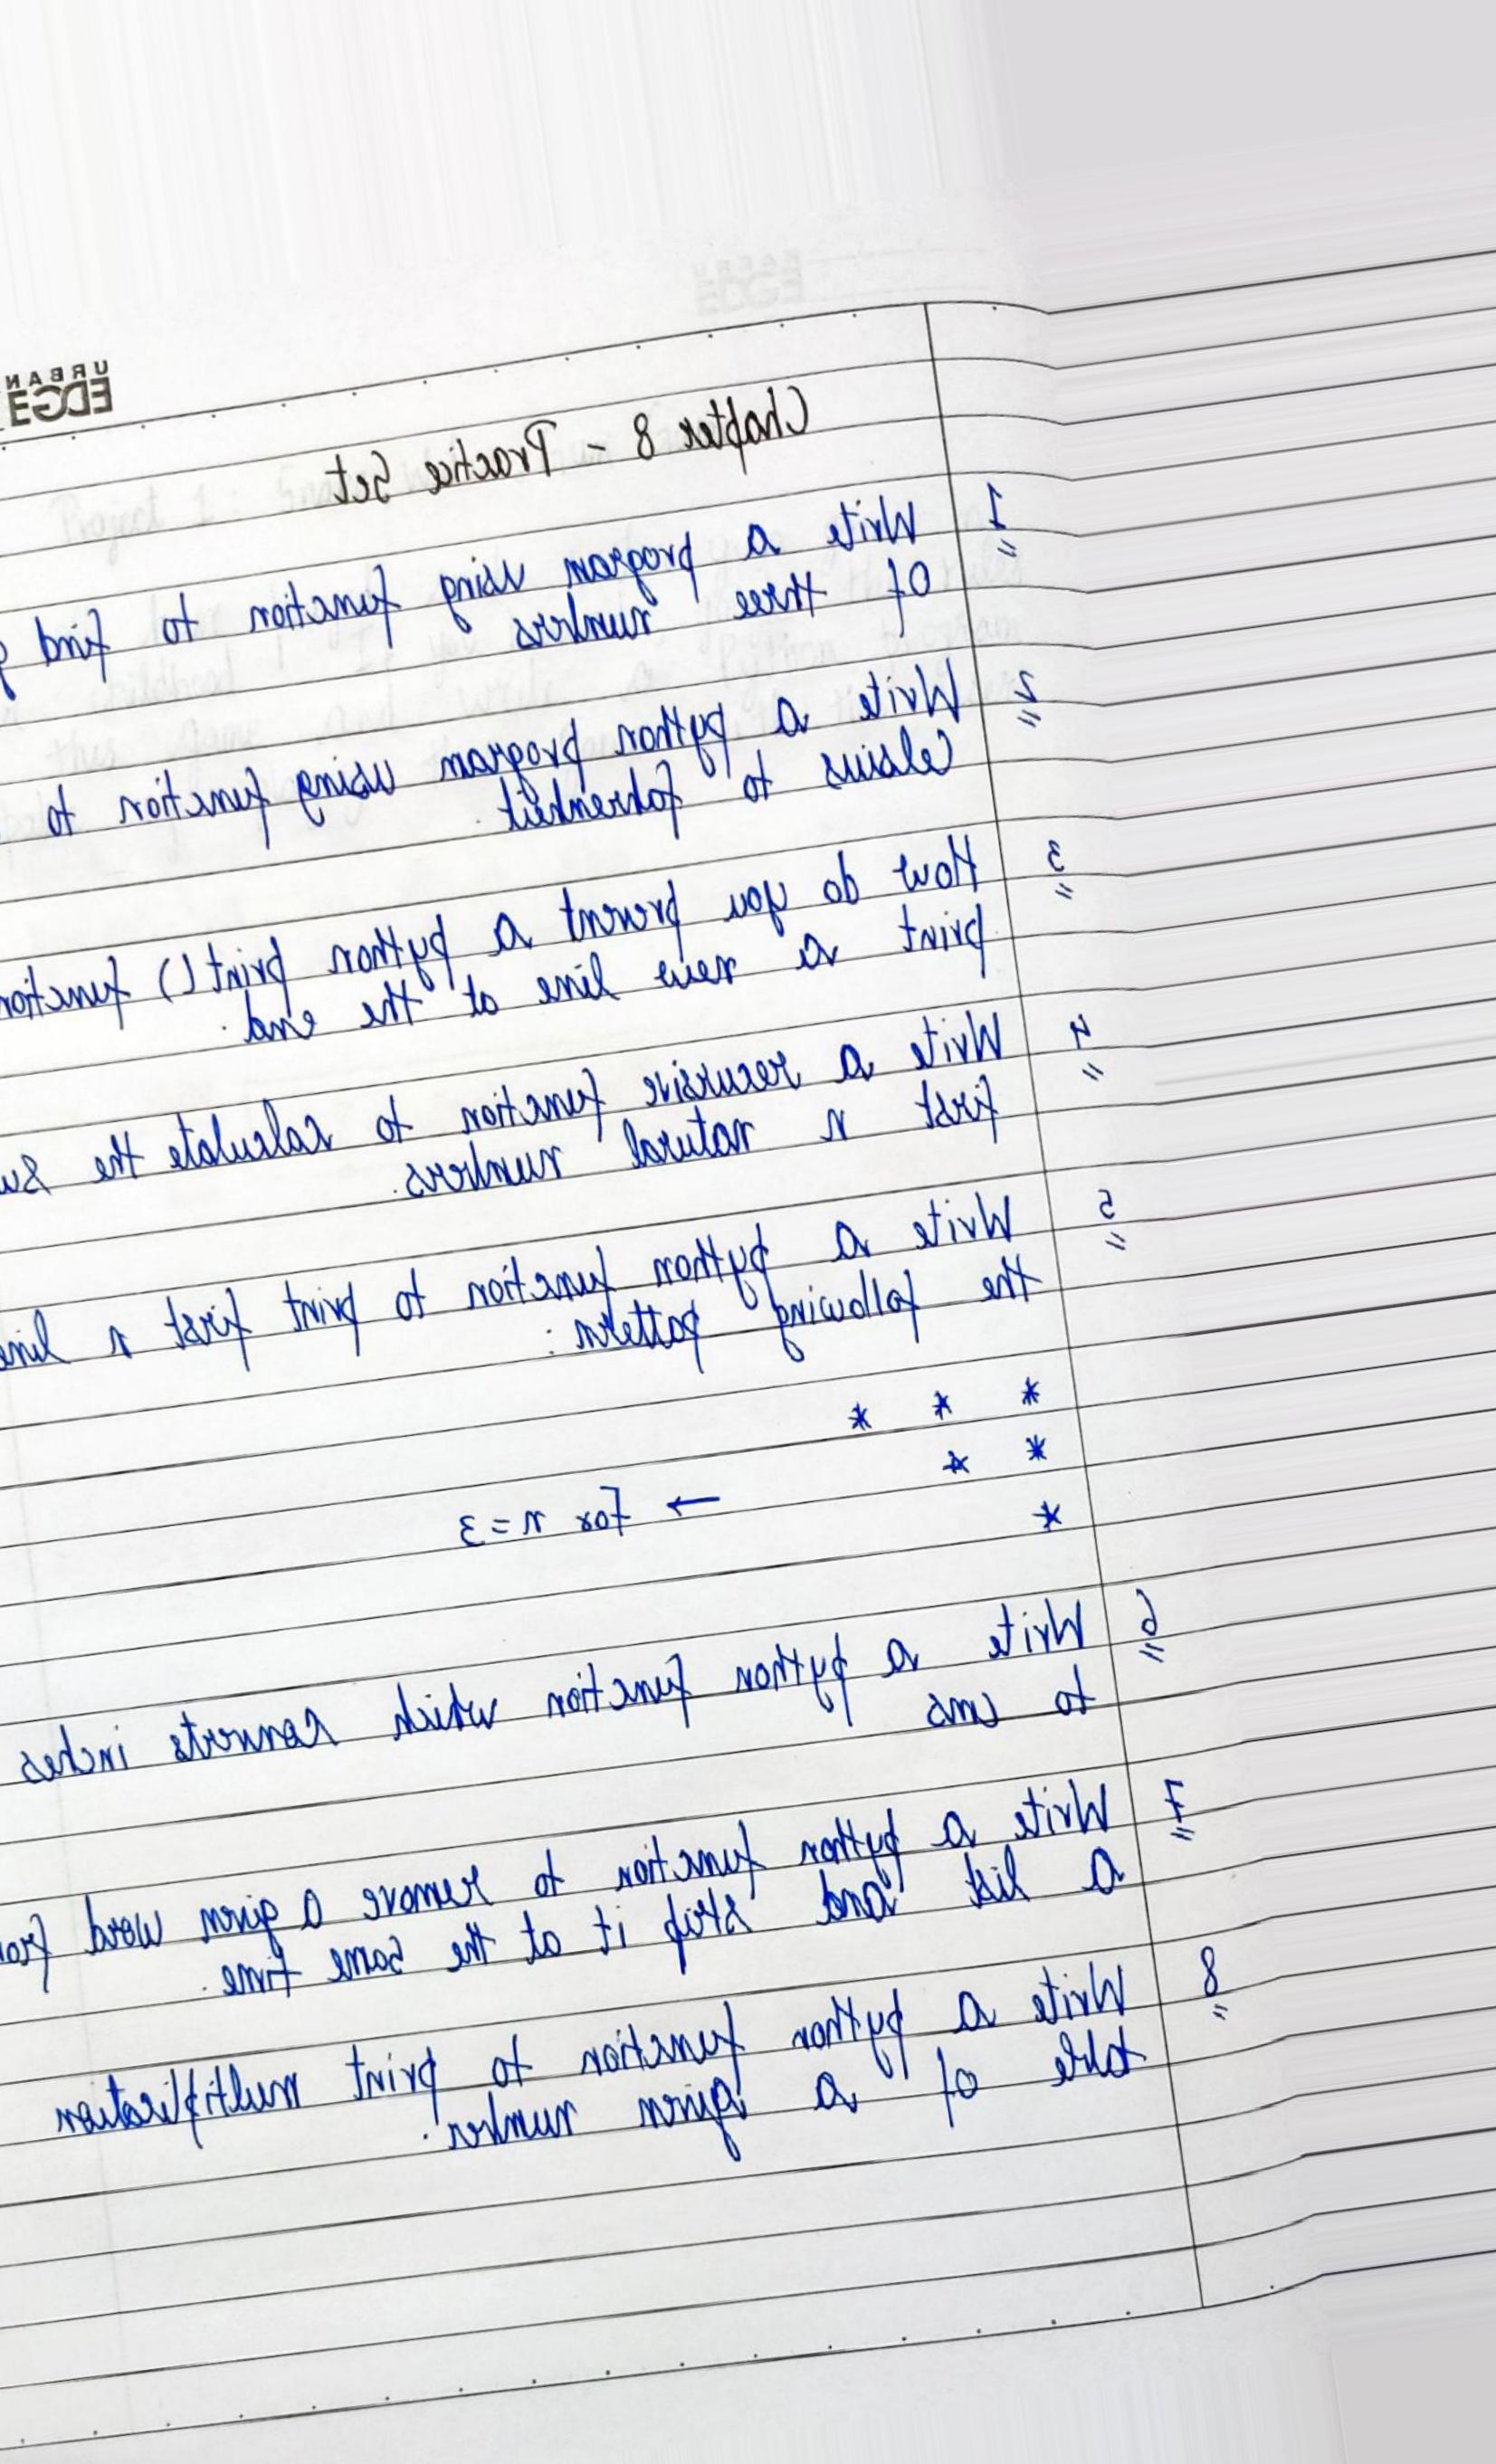 URBAN
EDGE
Chapter 8 - Practice Set
1 Write a program using function to find
of three numbers
2 Write a python program using function to
Celsius to fahrenheit.
3 How do you prevent a python print() function
print a new line at the end.
4 Write a recursive function to calculate the su
first n natural numbers.
5 Write a python function to print first n line
the following pattern:
* * *
* *
* → For n=3
6 Write a python function which converts inches
to cms
7 Write a python function to remove a given word fro
a list and strip it at the same time.
8 Write a python function to print multiplication
table of a given number.